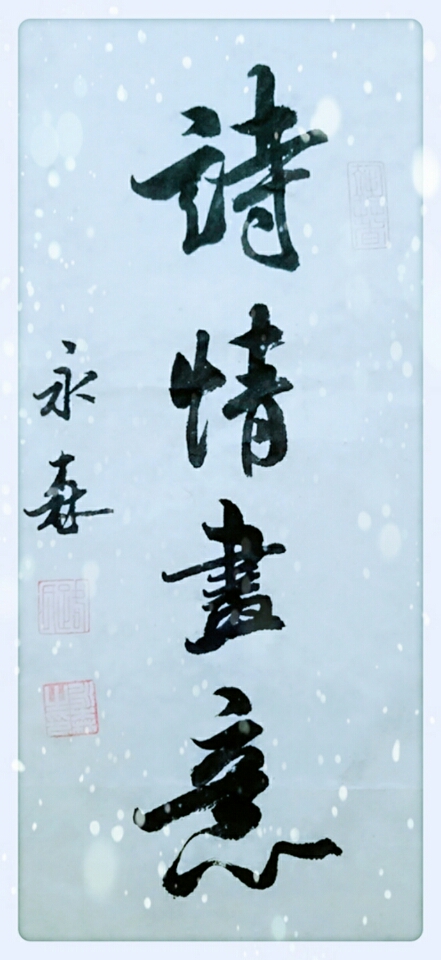 詩情畫意
永森